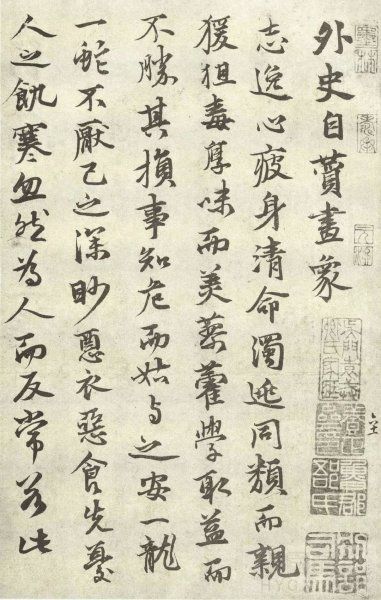 外史自贊畫象
志逸心疲身清命濁逃同類而親
猨狙毒厚味而美藜藿學取益而
不勝其損事知危而姑与之安一龍
一蛇不厭己之深眇惡衣惡食先憂
人之飢寒忽然為人而反常若此